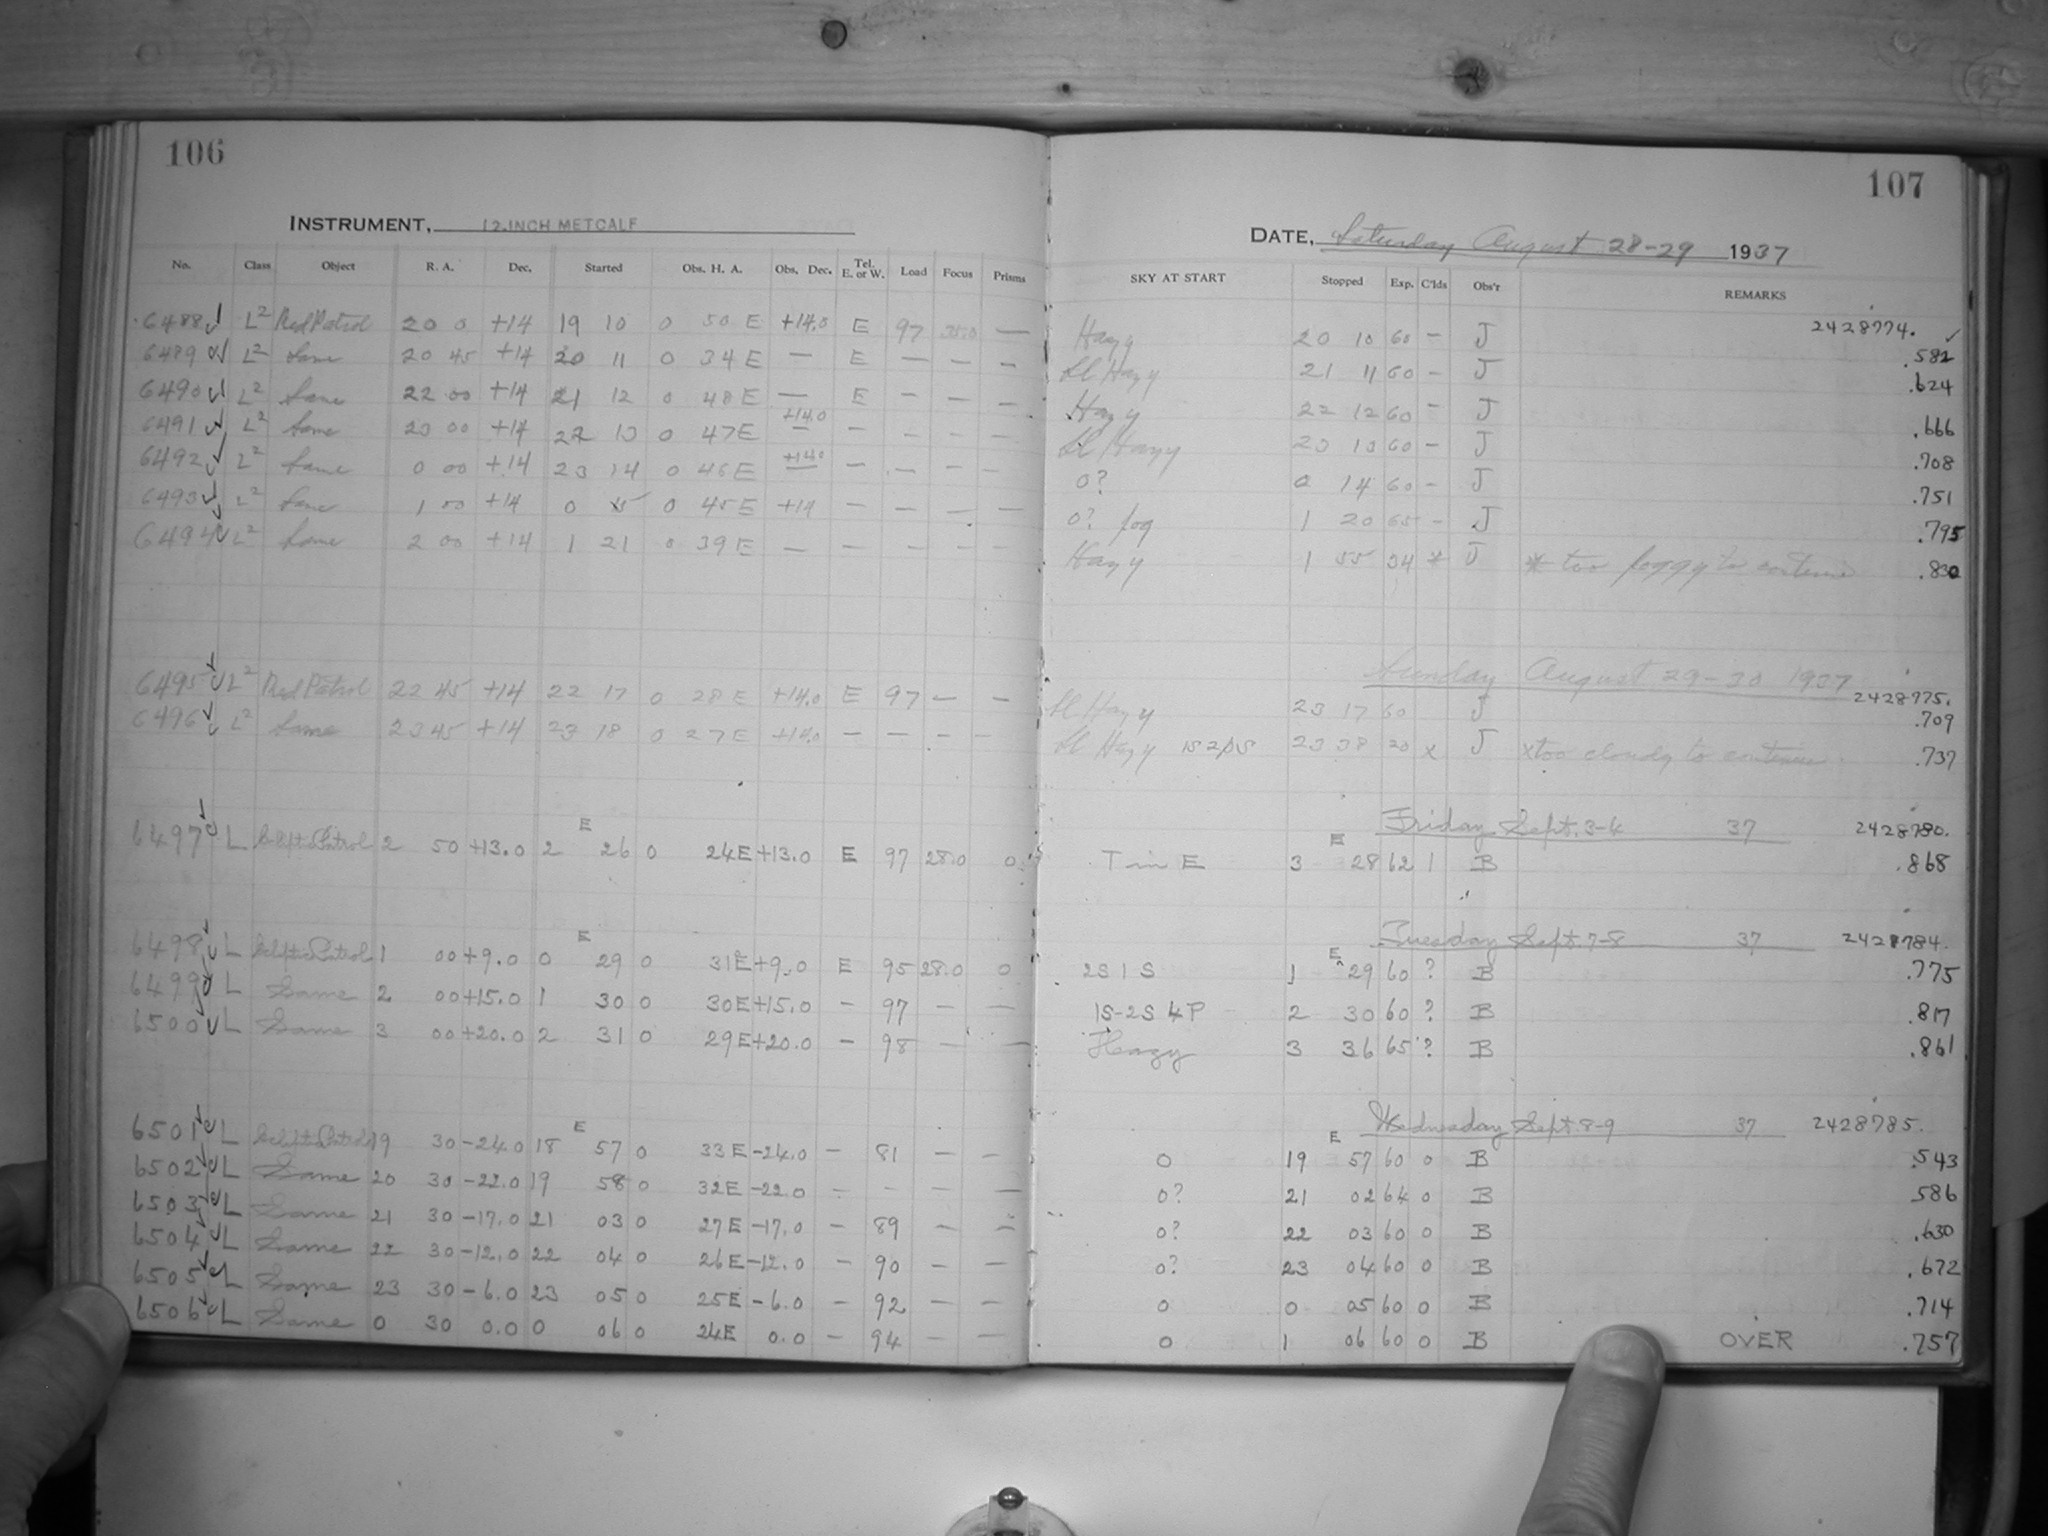 106
INSTRUMENT, 12.INCH METCALF
No. Class Object R. A. Dec. Started Obs. H. A. Obs. Dec. Tel. E. or W. Load Focus Prisms
6488 L2 Red Patrol 20 0 +14 19 10 0 50 E +14.0 E 97 —
6489 L2 Same 20 45 +14 20 11 0 34 E — E — — —
6490 L2 Same 22 00 +14 21 12 0 48 E — E — — —
6491 L2 Same 23 00 +14 22 13 0 47 E +14.0 — — — — —
6492 L2 Same 0 00 +14 23 14 0 46 E +14.0 — — — — —
6493 L2 Same 1 00 +14 0 15 0 45 E +14 — — — —
6494 L2 Same 2 00 +14 1 21 0 39 E — — — — —
6495 L2 Red Patrol 22 45 +14 22 17 0 28 E +14.0 E 97 — —
6496 L2 Same 23 45 +14 23 18 0 27 E +14.0 — — — —
6497 L Patrol 2 50 +13.0 2 E 26 0 24E +13.0 E 97 28.0 0
6498 L Patrol 1 00 +9.0 0 E 29 0 31E +9.0 E 95 28.0 0
6499 L Same 2 00 +15.0 1 30 0 30E +15.0 — 97 — —
6500 L Same 3 00 +20.0 2 31 0 29E +20.0 — 98 — —
6501 L 19 30 -24.0 18 E 57 0 33E -24.0 — 81 — —
6502 L Same 20 30 -22.0 19 58 0 32E -22.0 — — — —
6503 L Same 21 30 -17.0 21 03 0 27E -17.0 — 89 — —
6504 L Same 22 30 -12.0 22 04 0 26E -12.0 — 90 — —
6505 L Same 23 30 -6.0 23 05 0 25E -6.0 — 92 — —
6506 L Same 0 30 0.0 0 06 0 24E 0.0 — 94 — —
107
DATE, Saturday August 28-29 1937
SKY AT START Stopped Exp. C'lds Obs'r REMARKS
2428774.
Hazy 20 10 60 — J .582
Sl Hazy 21 11 60 — J .624
Hazy 22 12 60 — J .666
Sl Hazy 23 13 60 — J .708
0? 0 14 60 — J .751
0? fog 1 20 65 — J .795
Hazy 1 55 34 * J * too foggy to continue .830
Sunday August 29-30 1937
2428775.
Sl Hazy 23 17 60 J .709
Sl Hazy 23 38 20 x J x too cloudy to continue .737
Friday Sept. 3-4 37 2428780.
T in E 3 E 28 62 1 B .868
Tuesday Sept. 7-8 37 2428784.
2S 1 S 1 E 29 60 ? B .775
1S-2S 4P 2 30 60 ? B .817
Hazy 3 36 65 ? B .861
Wednesday Sept 8-9 37 2428785.
0 19 E 57 60 0 B .543
0? 21 02 64 0 B 586
0? 22 03 60 0 B .630
0? 23 04 60 0 B .672
0 0 05 60 0 B .714
0 1 06 60 0 B OVER .757